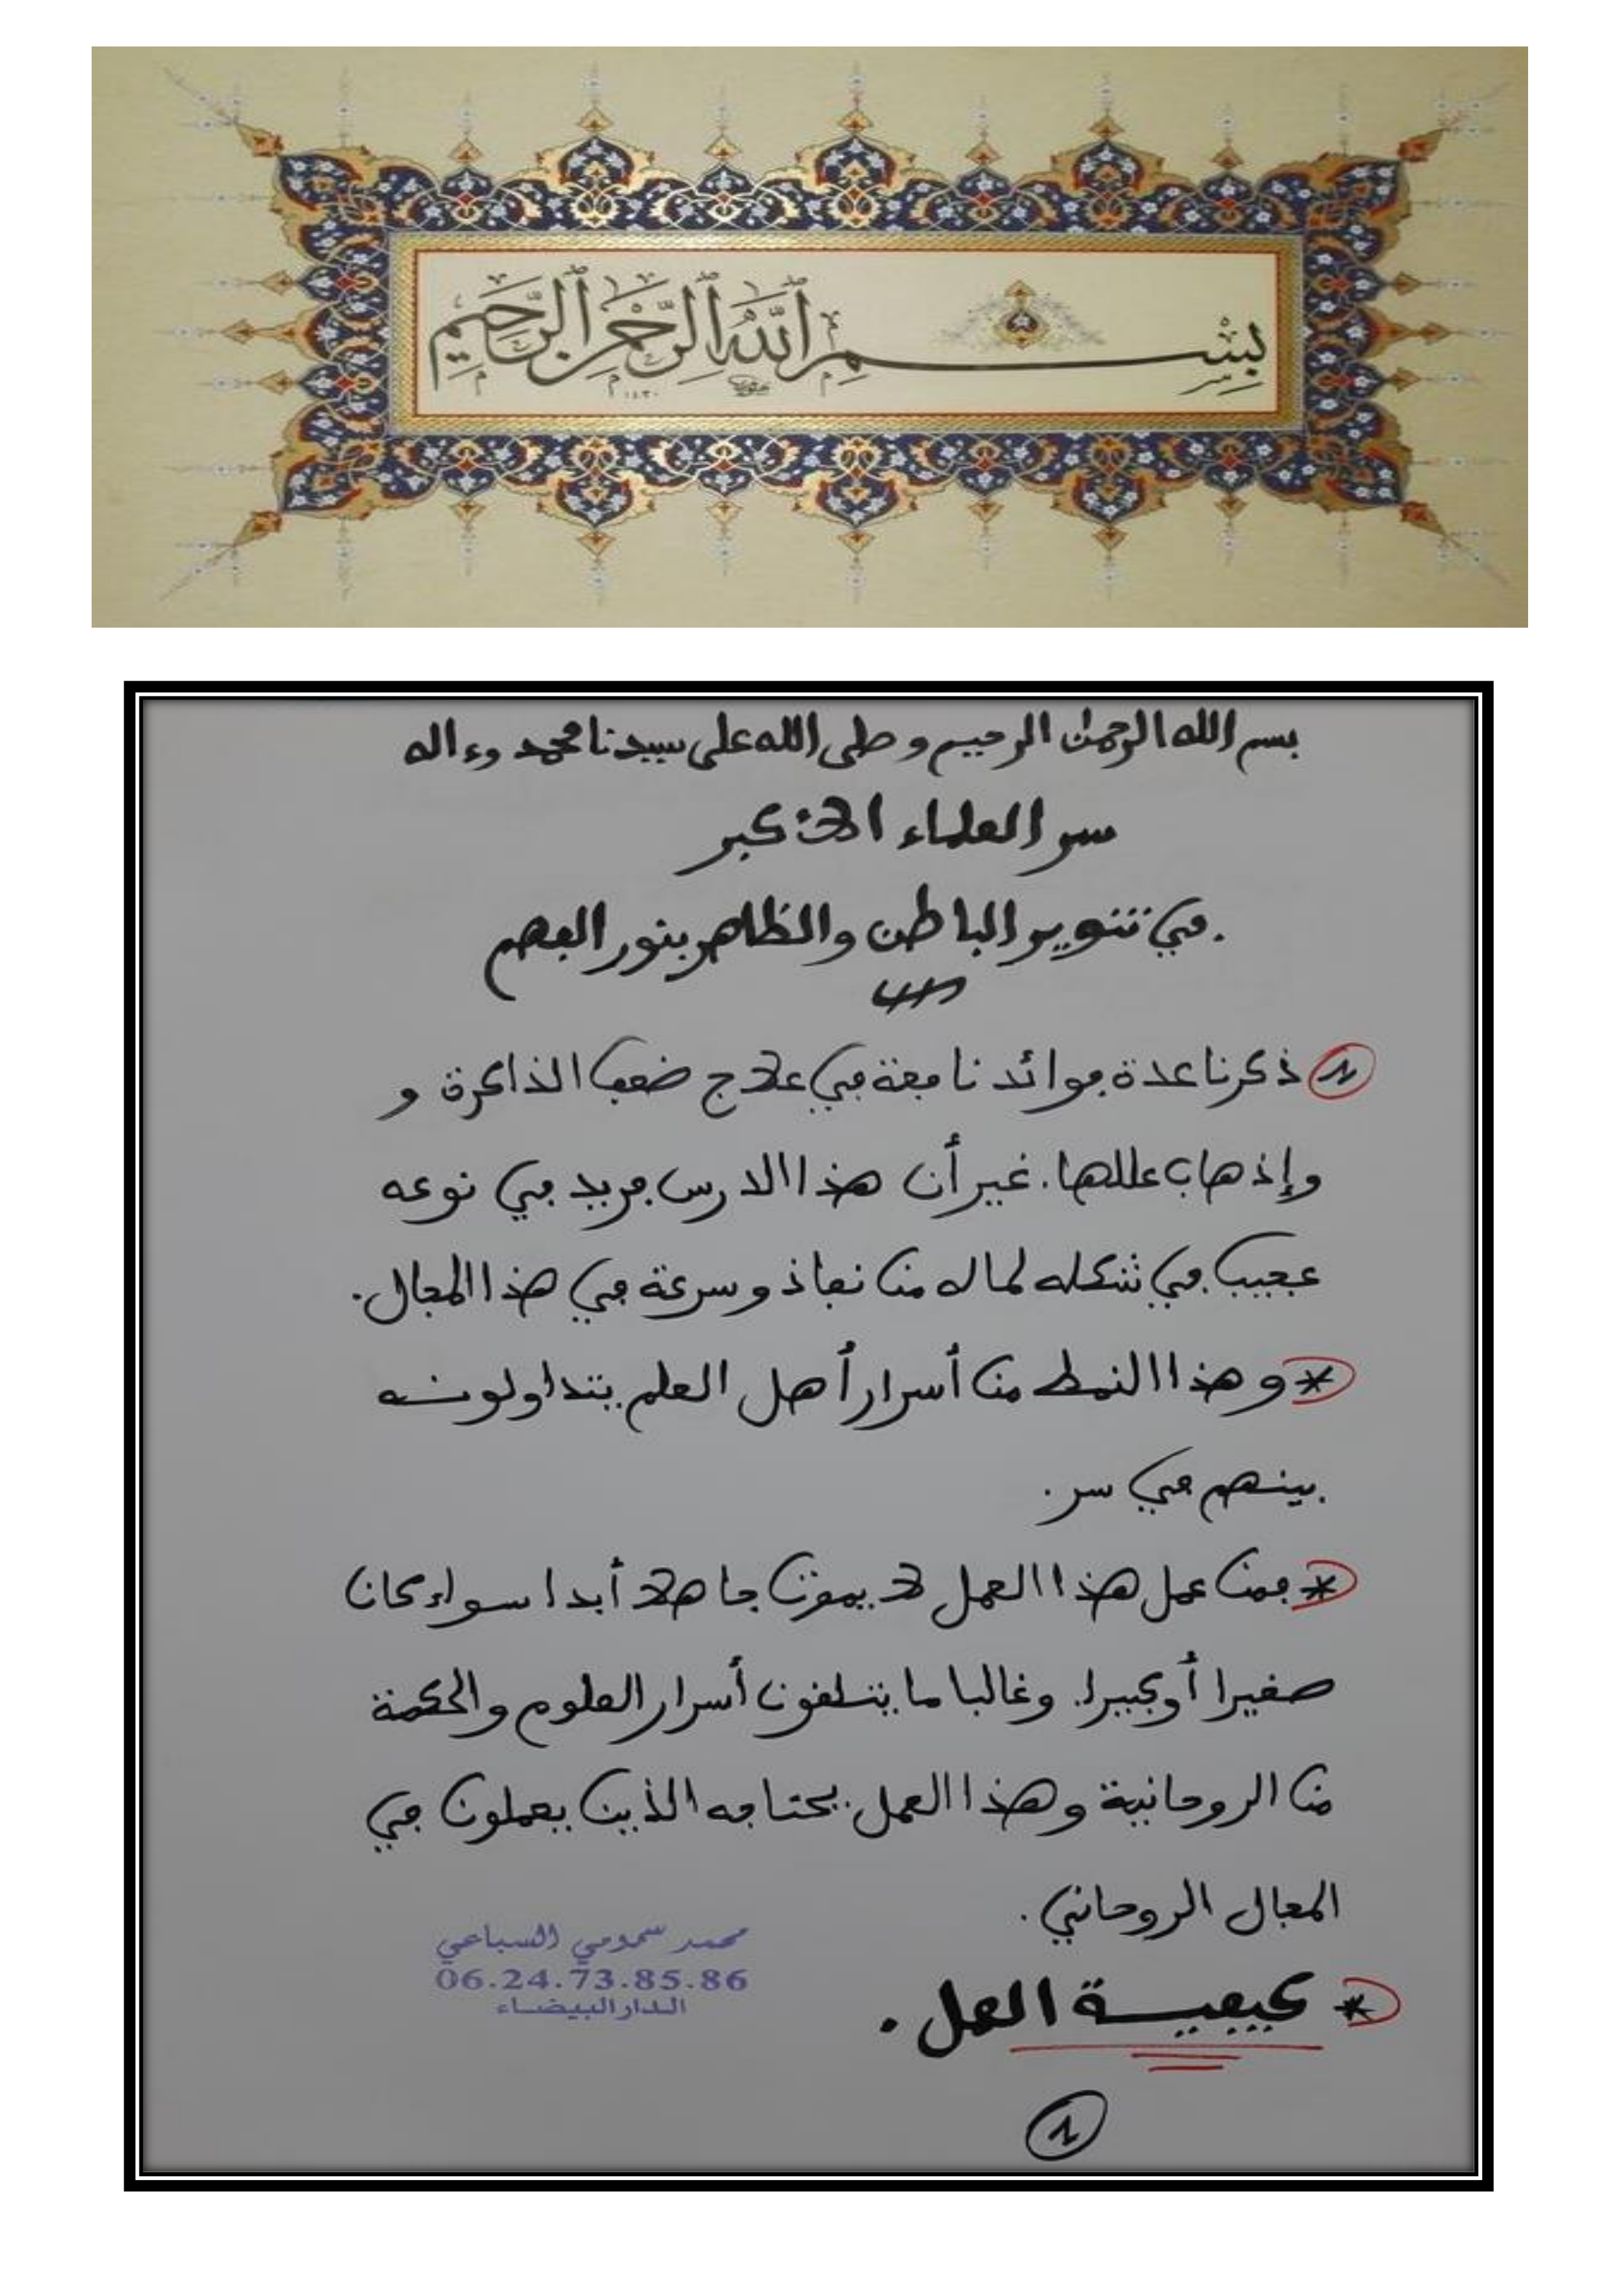 بِسْمِ ٱللَّهِ ٱلرَّحْمٰنِ ٱلرَّحِيمِ
١٤٣٠
بسم الله الرحمن الرحيم وصلى الله على سيدنا محمد وءاله
سر العلماء الأكبر
في تنوير الباطن والظاهر بنور الفهم
ذكرنا عدة فوائد نافعة في علاج ضعف الذاكرة و
وإذهاب عللها. غير أن هذا الدرس فريد في نوعه
عجيب في شكله لما له من نفاذ وسرعة في هذا المجال.
* وهذا النمط من أسرار أهل العلم يتداولونه
بينهم في سر.
* فمن عمل هذا العمل لا يموت جاهلا أبدا سواء كان
صغيرا أو كبيرا. وغالبا ما يتلقون أسرار العلوم والحكمة
من الروحانية وهذا العمل يحتاجه الذين يعملون في
المجال الروحاني.
محمد سمومي السباعي
06.24.73.85.86
الدار البيضاء
* كيفية العمل.
1